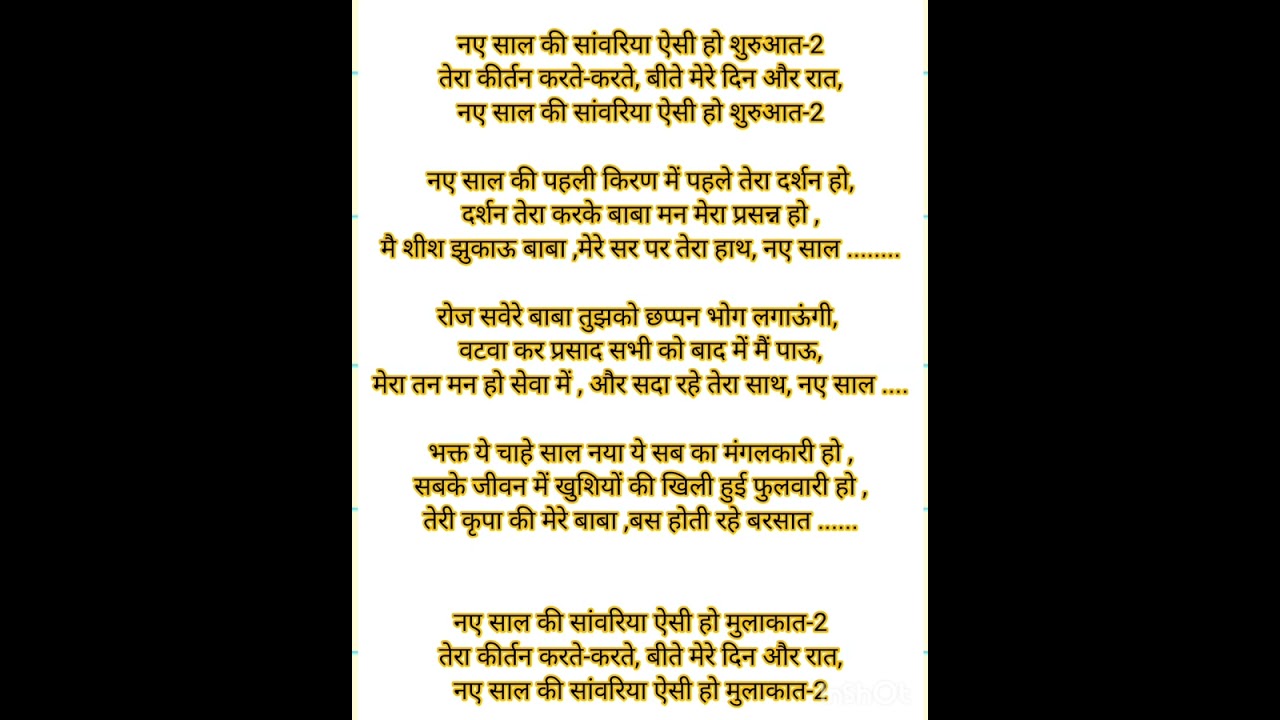 नए साल की सांवरिया ऐसी हो शुरुआत-2
तेरा कीर्तन करते-करते, बीते मेरे दिन और रात,
नए साल की सांवरिया ऐसी हो शुरुआत-2
नए साल की पहली किरण में पहले तेरा दर्शन हो,
दर्शन तेरा करके बाबा मन मेरा प्रसन्न हो ,
मै शीश झुकाऊ बाबा ,मेरे सर पर तेरा हाथ, नए साल ........
रोज सवेरे बाबा तुझको छप्पन भोग लगाऊंगी,
वटवा कर प्रसाद सभी को बाद में मैं पाऊ,
मेरा तन मन हो सेवा में , और सदा रहे तेरा साथ, नए साल ....
भक्त ये चाहे साल नया ये सब का मंगलकारी हो ,
सबके जीवन में खुशियों की खिली हुई फुलवारी हो ,
तेरी कृपा की मेरे बाबा ,बस होती रहे बरसात ......
नए साल की सांवरिया ऐसी हो मुलाकात-2
तेरा कीर्तन करते-करते, बीते मेरे दिन और रात,
नए साल की सांवरिया ऐसी हो मुलाकात-2
InShOt